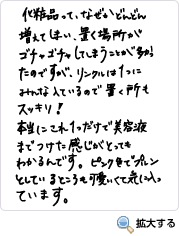 化粧品って、なぜかどんどん
増えてしまい、置く場所が
ゴチャゴチャしてしまうことが多かっ
たのですが、リンクルは1つに
みんな入っているので置く所も
スッキリ!
本当にこれ1つだけで美容液
までつけた感じがとっても
わかるんです。ピンク色でプルン
としているところも可愛いくて気に入っ
ています。
拡大する